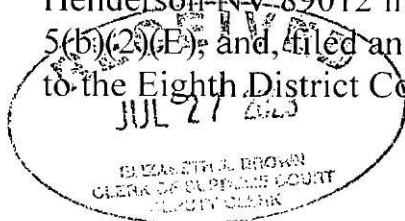 Henderson NV 89012
5(b)(2)(E); and, filed an
to the Eighth District Co
JUL 27
ELIZABETH A. BROWN
CLERK OF SUPREME COURT
DEPUTY CLERK